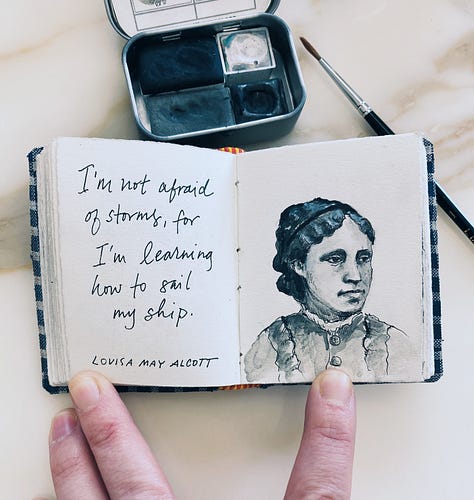 I'm not afraid
of storms, for
I'm learning
how to sail
my ship.
LOUISA MAY ALCOTT